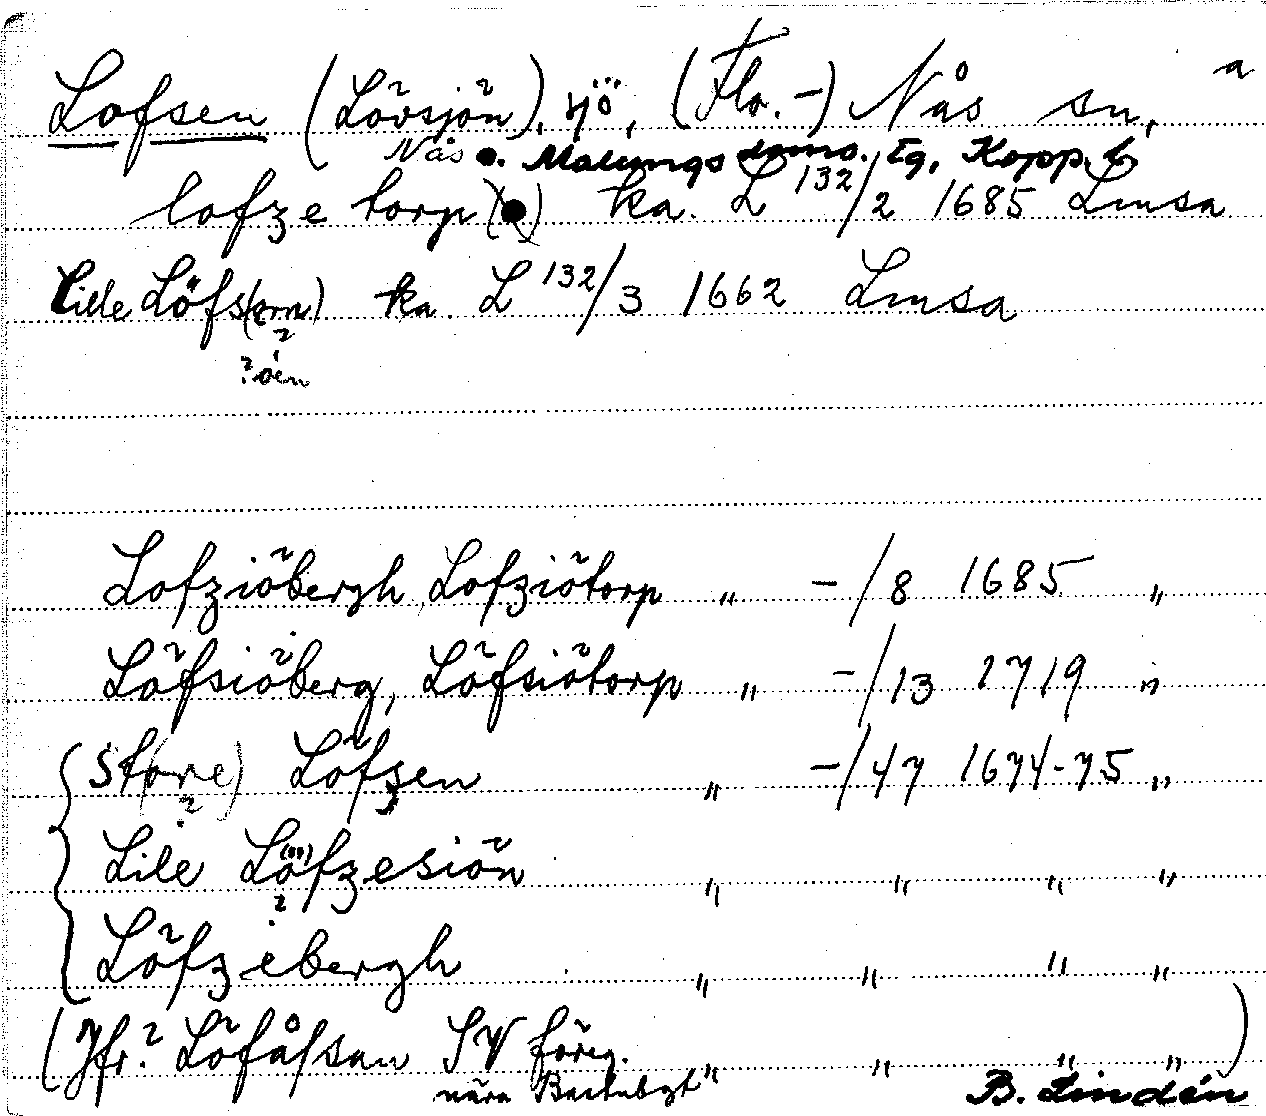 Lofsen (Lövsjön), sjö, (Flo. -) Nås sn, a
Nås o. Malungs doms. tg, Kopp. b
lofze torp ka. L 132/2 1685 Lmsa
Lille Löfs(orn) ka. L 132/3 1662 Lmsa
?
? öen
Lofziöbergh, Lofziötorp " -/8 1685 "
Löfsiöberg, Löfsiötorp " -/13 1719 "
St(ore) Löfzen " -/47 1674-75 "
?
Lile Löfzesiön " " " "
?
Löfzebergh " " " "
(Jfr? Löfåssan SV föreg. " " " ")
nära
B. Lindén